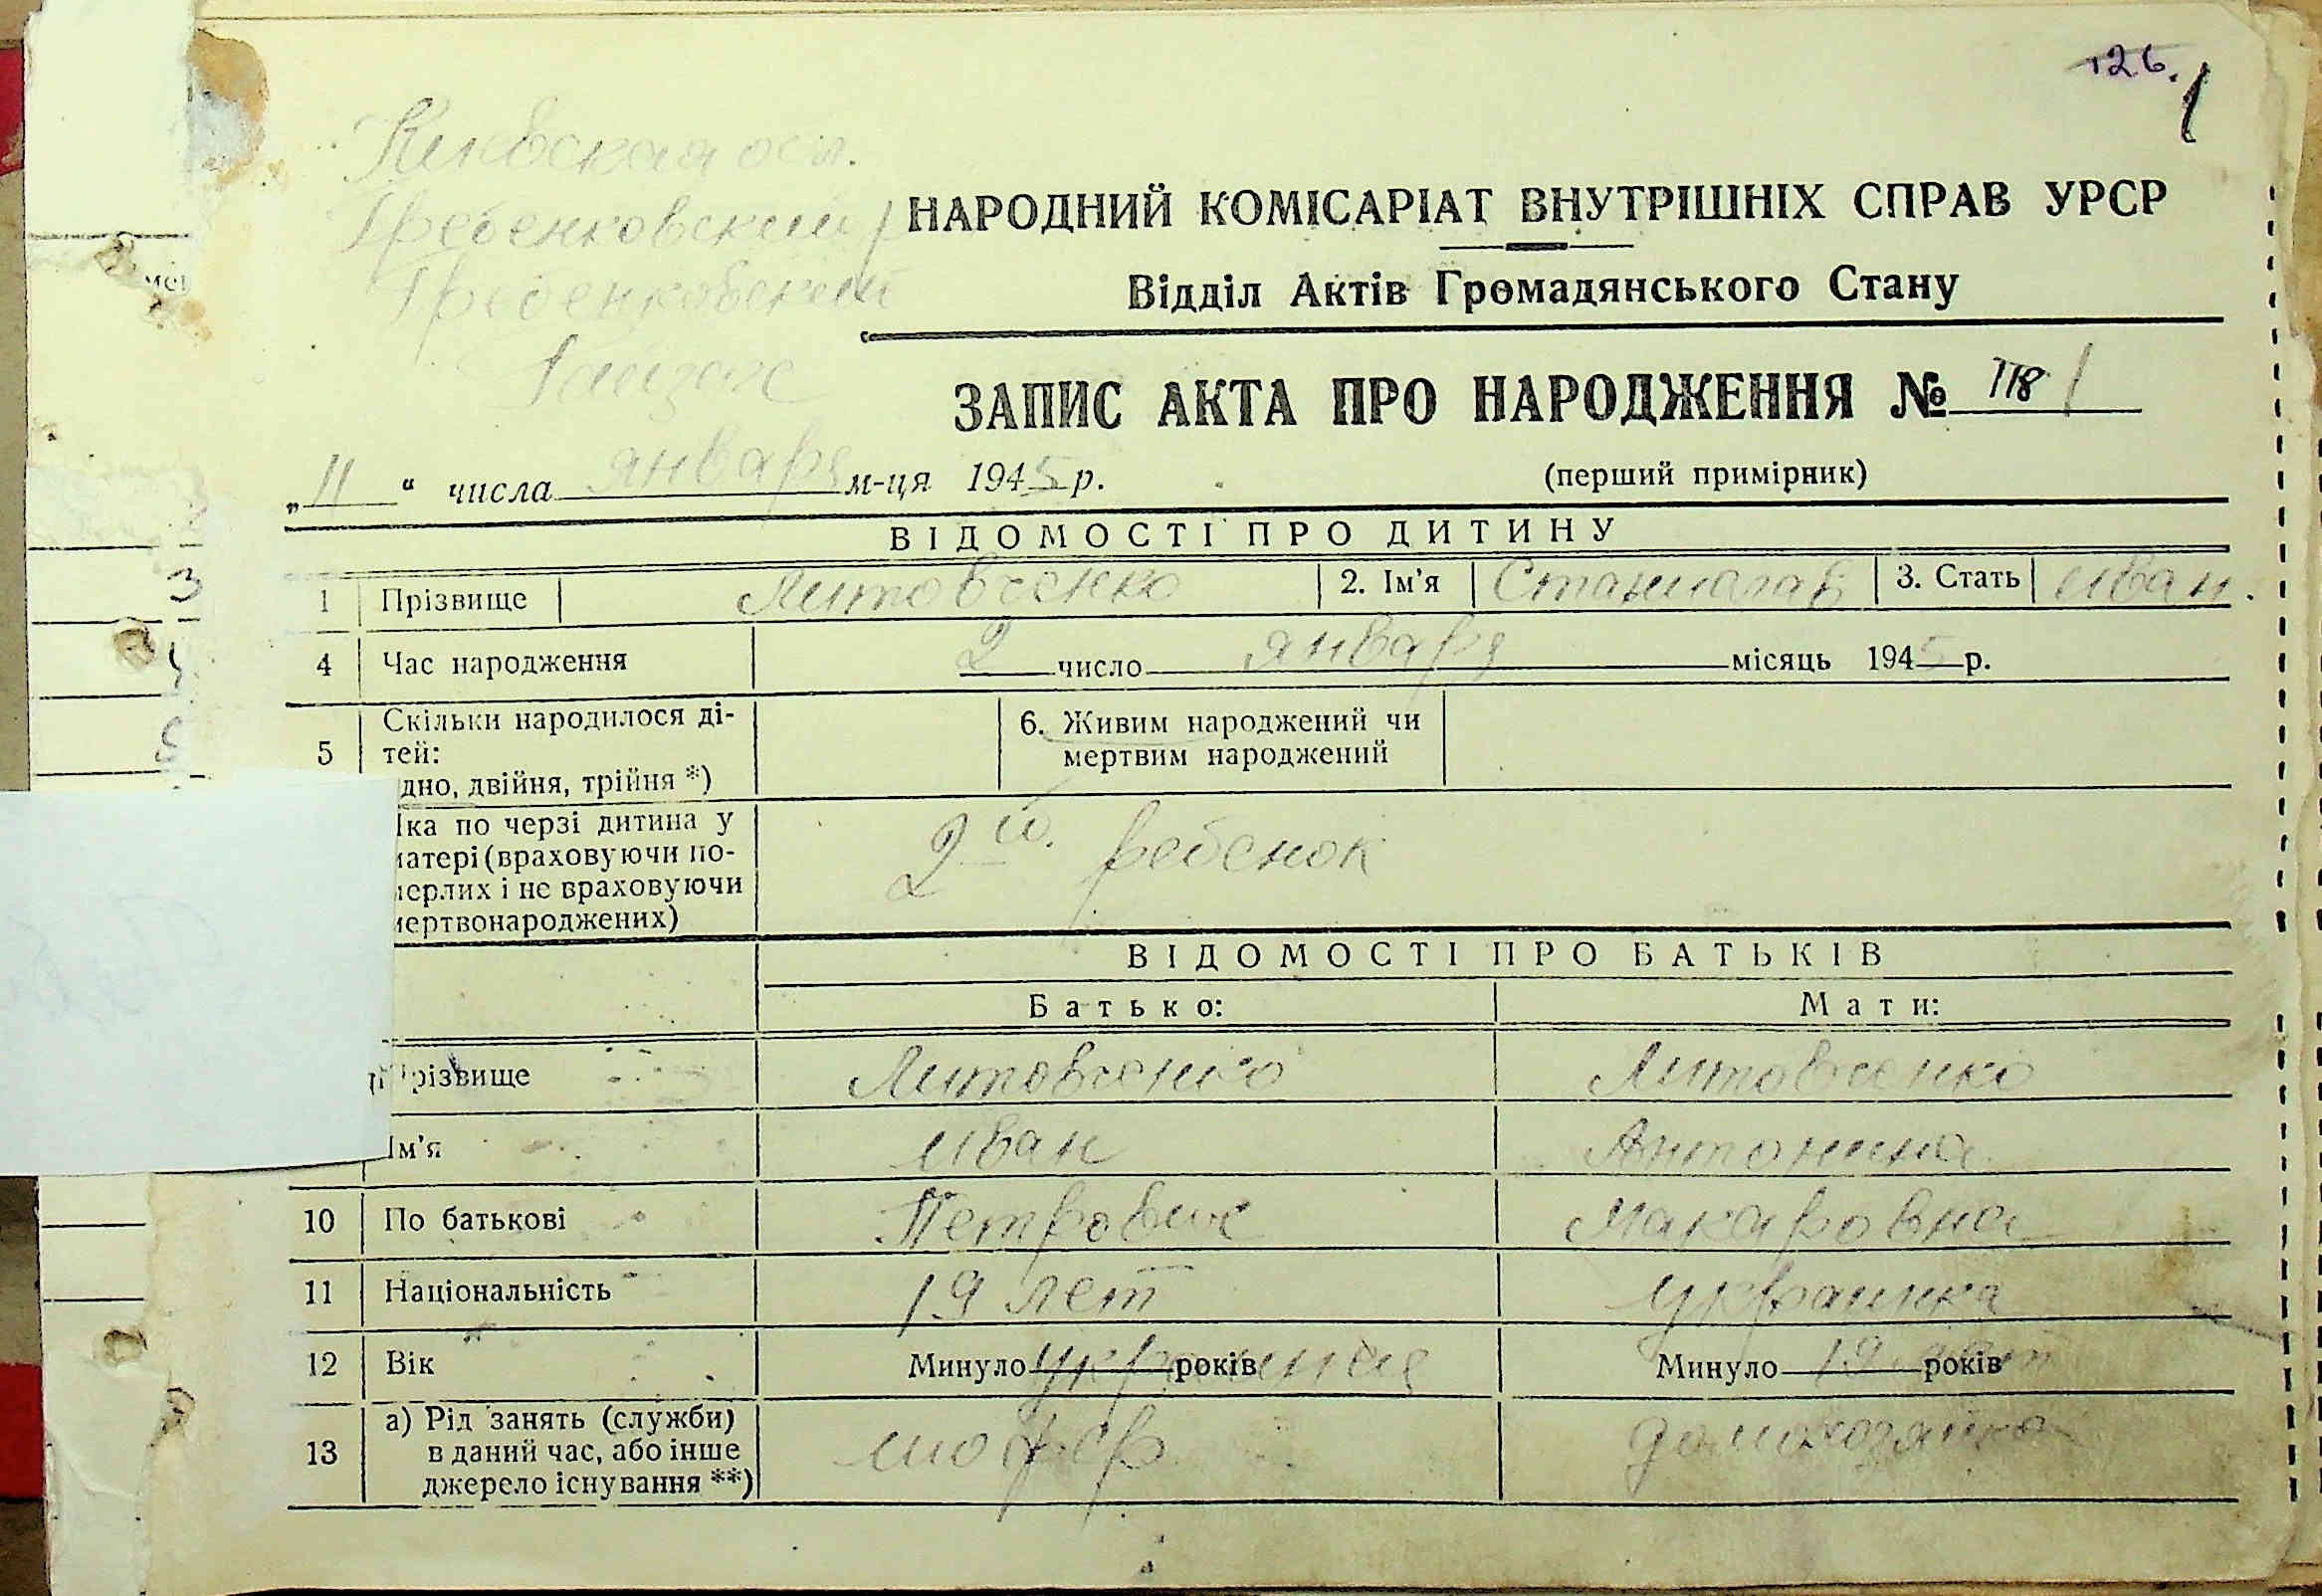 126.
Киевская обл.
Гребенковский р
Гребенковский
Райзагс
НАРОДНИЙ КОМІСАРІАТ ВНУТРІШНІХ СПРАВ УРСР
Відділ Актів Громадянського Стану
ЗАПИС АКТА ПРО НАРОДЖЕННЯ № 118 1
„11“ числа января м-ця 1945 р.
(перший примірник)
ВІДОМОСТІ ПРО ДИТИНУ
1 Прізвище Литовченко 2. Ім'я Станислав 3. Стать
4 Час народження 2 число января місяць 1945 р.
Скільки народилося ді-
5 тей:
дно, двійня, трійня *)
6. Живим народжений чи
мертвим народжений
ка по черзі дитина у
атері (враховуючи по-
ерлих і не враховуючи
ертвонароджених)
2й. ребенок
ВІДОМОСТІ ПРО БАТЬКІВ
Батько: Мати:
різвище Литовченко Литовченко
Ім'я Иван Антонина
10 По батькові Петрович Макаровна
11 Національність 19 лет украинка
12 Вік Минуло украинец років Минуло 19 лет років
13 а) Рід занять (служби)
в даний час, або інше
джерело існування **)
шофер домохозяйка